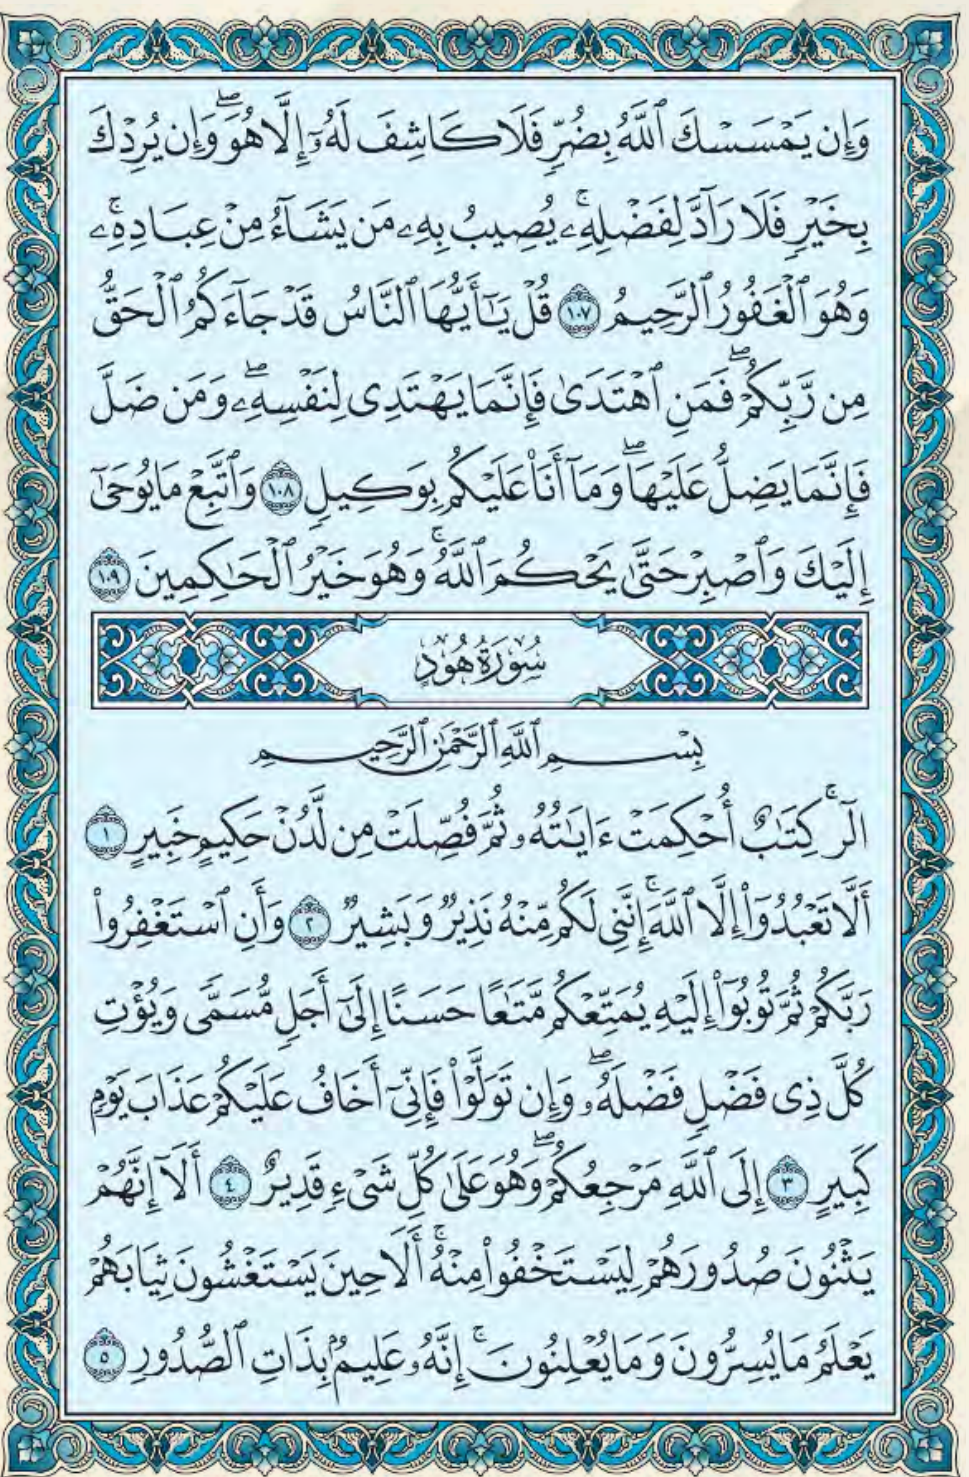 وَإِن يَمْسَسْكَ ٱللَّهُ بِضُرٍّ فَلَا كَاشِفَ لَهُۥٓ إِلَّا هُوَۖ وَإِن يُرِدْكَ
بِخَيْرٍ فَلَا رَآدَّ لِفَضْلِهِۦۚ يُصِيبُ بِهِۦ مَن يَشَآءُ مِنْ عِبَادِهِۦۚ
وَهُوَ ٱلْغَفُورُ ٱلرَّحِيمُ ١٠٧ قُلْ يَـٰٓأَيُّهَا ٱلنَّاسُ قَدْ جَآءَكُمُ ٱلْحَقُّ
مِن رَّبِّكُمْۖ فَمَنِ ٱهْتَدَىٰ فَإِنَّمَا يَهْتَدِى لِنَفْسِهِۦۖ وَمَن ضَلَّ
فَإِنَّمَا يَضِلُّ عَلَيْهَاۖ وَمَآ أَنَا۠ عَلَيْكُم بِوَكِيلٍ ١٠٨ وَٱتَّبِعْ مَا يُوحَىٰٓ
إِلَيْكَ وَٱصْبِرْ حَتَّىٰ يَحْكُمَ ٱللَّهُۚ وَهُوَ خَيْرُ ٱلْحَـٰكِمِينَ ١٠٩
سُورَةُ هُودٍ
بِسْمِ ٱللَّهِ ٱلرَّحْمَـٰنِ ٱلرَّحِيمِ
الٓرۚ كِتَـٰبٌ أُحْكِمَتْ ءَايَـٰتُهُۥ ثُمَّ فُصِّلَتْ مِن لَّدُنْ حَكِيمٍ خَبِيرٍ ١
أَلَّا تَعْبُدُوٓا۟ إِلَّا ٱللَّهَۚ إِنَّنِى لَكُم مِّنْهُ نَذِيرٌ وَبَشِيرٌ ٢ وَأَنِ ٱسْتَغْفِرُوا۟
رَبَّكُمْ ثُمَّ تُوبُوٓا۟ إِلَيْهِ يُمَتِّعْكُم مَّتَـٰعًا حَسَنًا إِلَىٰٓ أَجَلٍ مُّسَمًّى وَيُؤْتِ
كُلَّ ذِى فَضْلٍ فَضْلَهُۥۖ وَإِن تَوَلَّوْا۟ فَإِنِّىٓ أَخَافُ عَلَيْكُمْ عَذَابَ يَوْمٍ
كَبِيرٍ ٣ إِلَى ٱللَّهِ مَرْجِعُكُمْۖ وَهُوَ عَلَىٰ كُلِّ شَىْءٍ قَدِيرٌ ٤ أَلَآ إِنَّهُمْ
يَثْنُونَ صُدُورَهُمْ لِيَسْتَخْفُوا۟ مِنْهُۚ أَلَا حِينَ يَسْتَغْشُونَ ثِيَابَهُمْ
يَعْلَمُ مَا يُسِرُّونَ وَمَا يُعْلِنُونَۚ إِنَّهُۥ عَلِيمٌۢ بِذَاتِ ٱلصُّدُورِ ٥